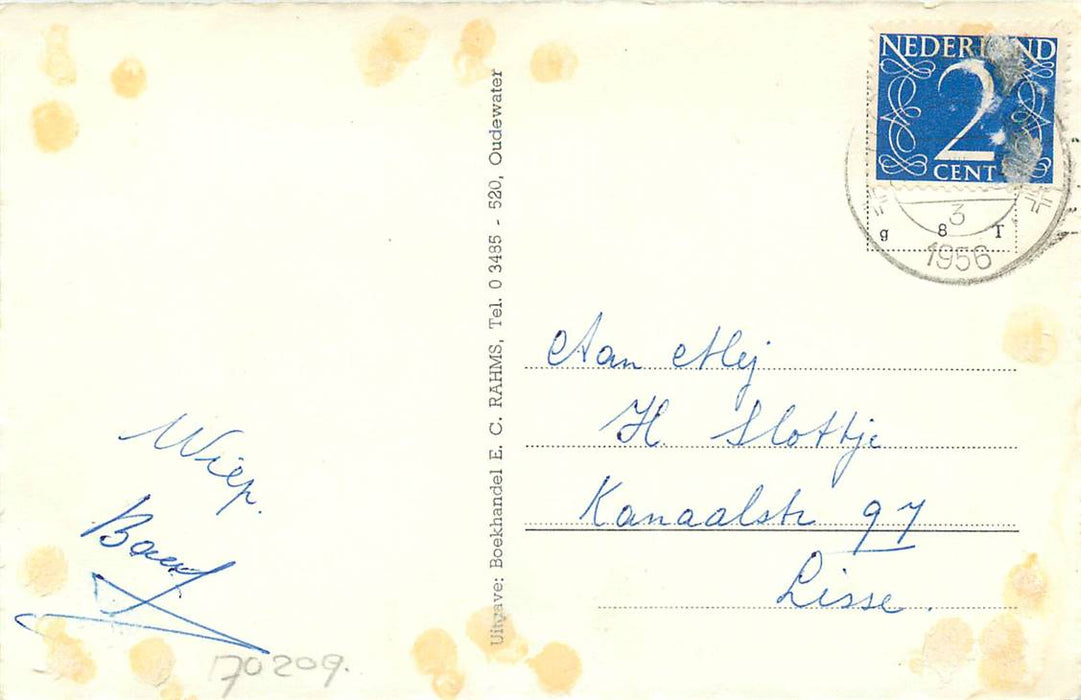 NEDERLAND
2
CENT
3
g 8 T
1956
Uitgave: Boekhandel E. C. RAHMS, Tel. 0 3485 - 520, Oudewater
Aan Mej
H Slottje
Kanaalstr 97
Lisse.
Wiep.
170209.